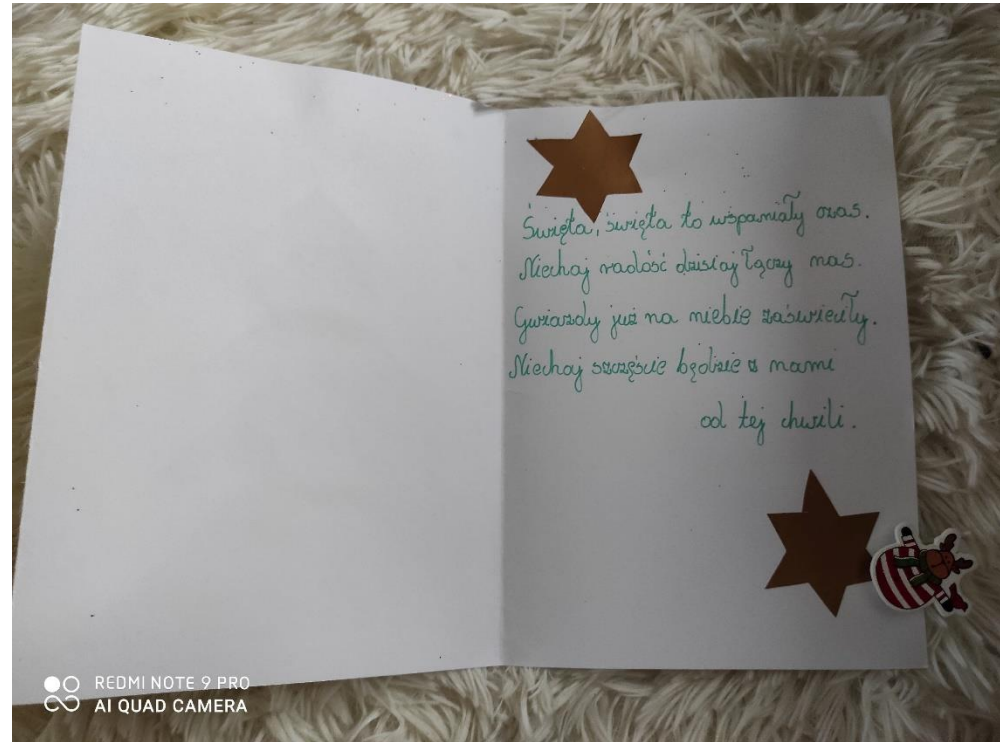 Święta, święta to wspaniały czas.
Niechaj radość dzisiaj łączy nas.
Gwiazdy już na niebie zaświeciły.
Niechaj szczęście będzie z nami
od tej chwili.
REDMI NOTE 9 PRO
AI QUAD CAMERA